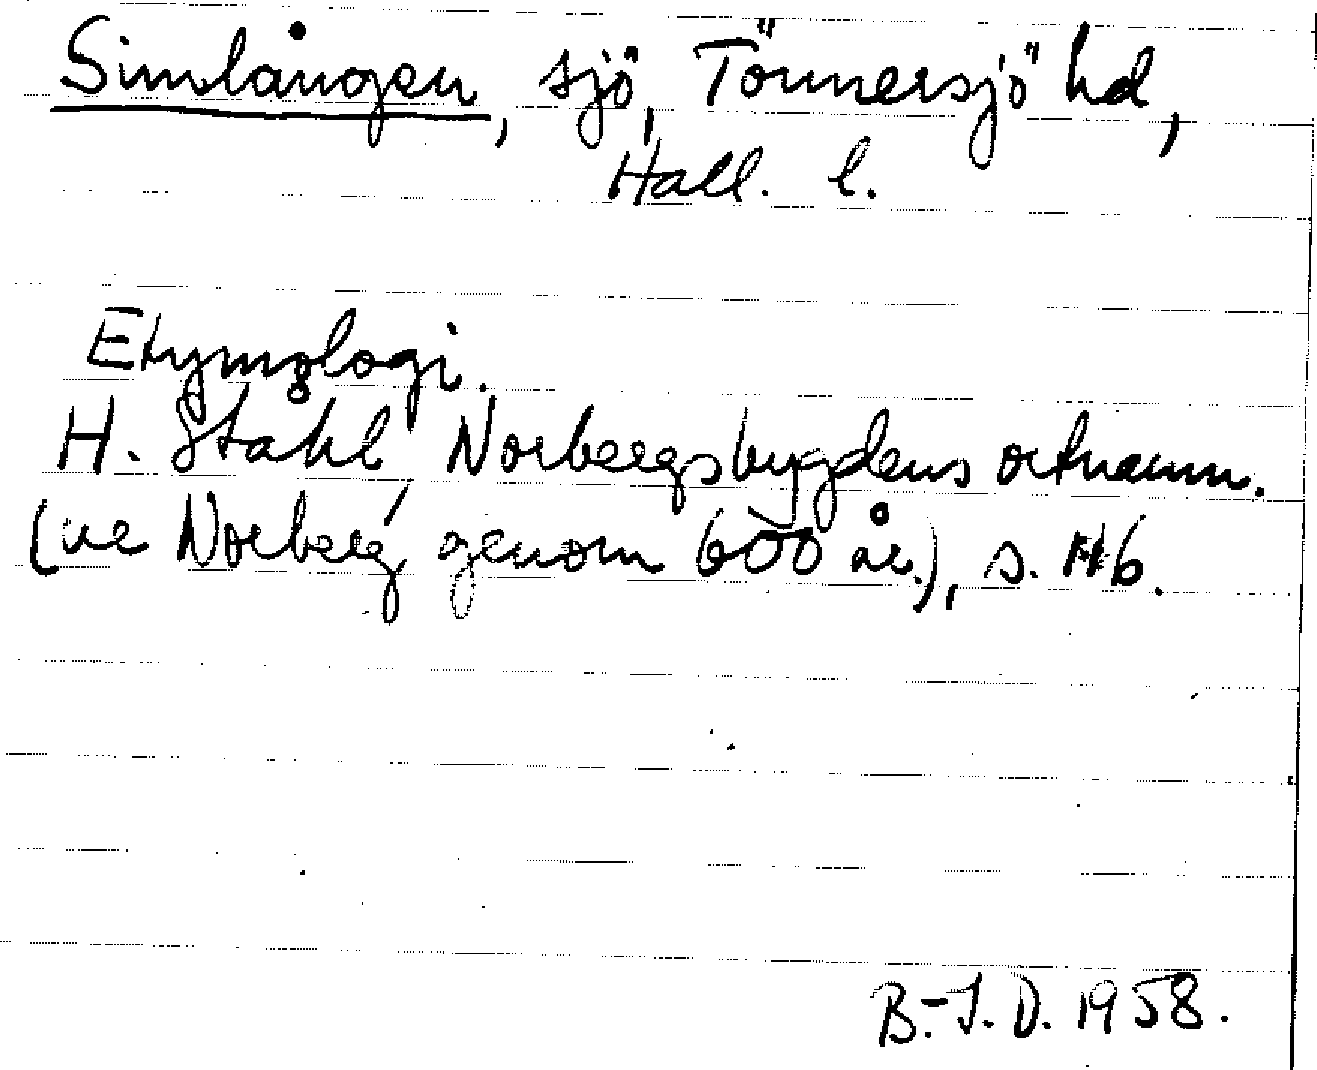 Simlången, sjö, Tönnersjö hd,
Hall. l.
Etymologi.
H. Ståhl, Norbergsbygdens ortnamn.
(ur Norberg genom 600 år.), s.
B.-I.D. 1958.